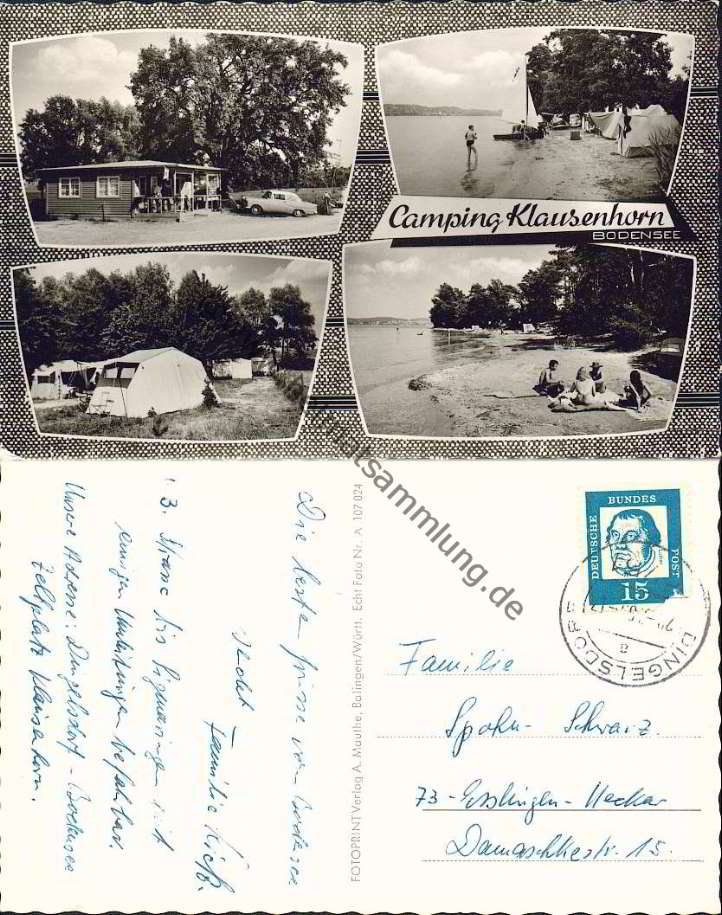 Camping Klausenhorn
BODENSEE
Ansichtskartensammlung.de
Die besten Grüsse vom Bodensee
sendet
Familie
B. Strasse bis Sigmaringen mit
einigen Umleitungen befahrbar.
Unsere Adresse: Dingelsdorf - Bodensee
Zeltplatz Klausenhorn.
FOTOPRINT Verlag A. Mauthe, Balingen/Württ. Echt Foto Nr. A 107 024
DEUTSCHE BUNDES POST
15
DINGELSDORF
a
Familie
Spohn - Schwarz.
73 - Esslingen - Neckar
Damaschkestr. 15.